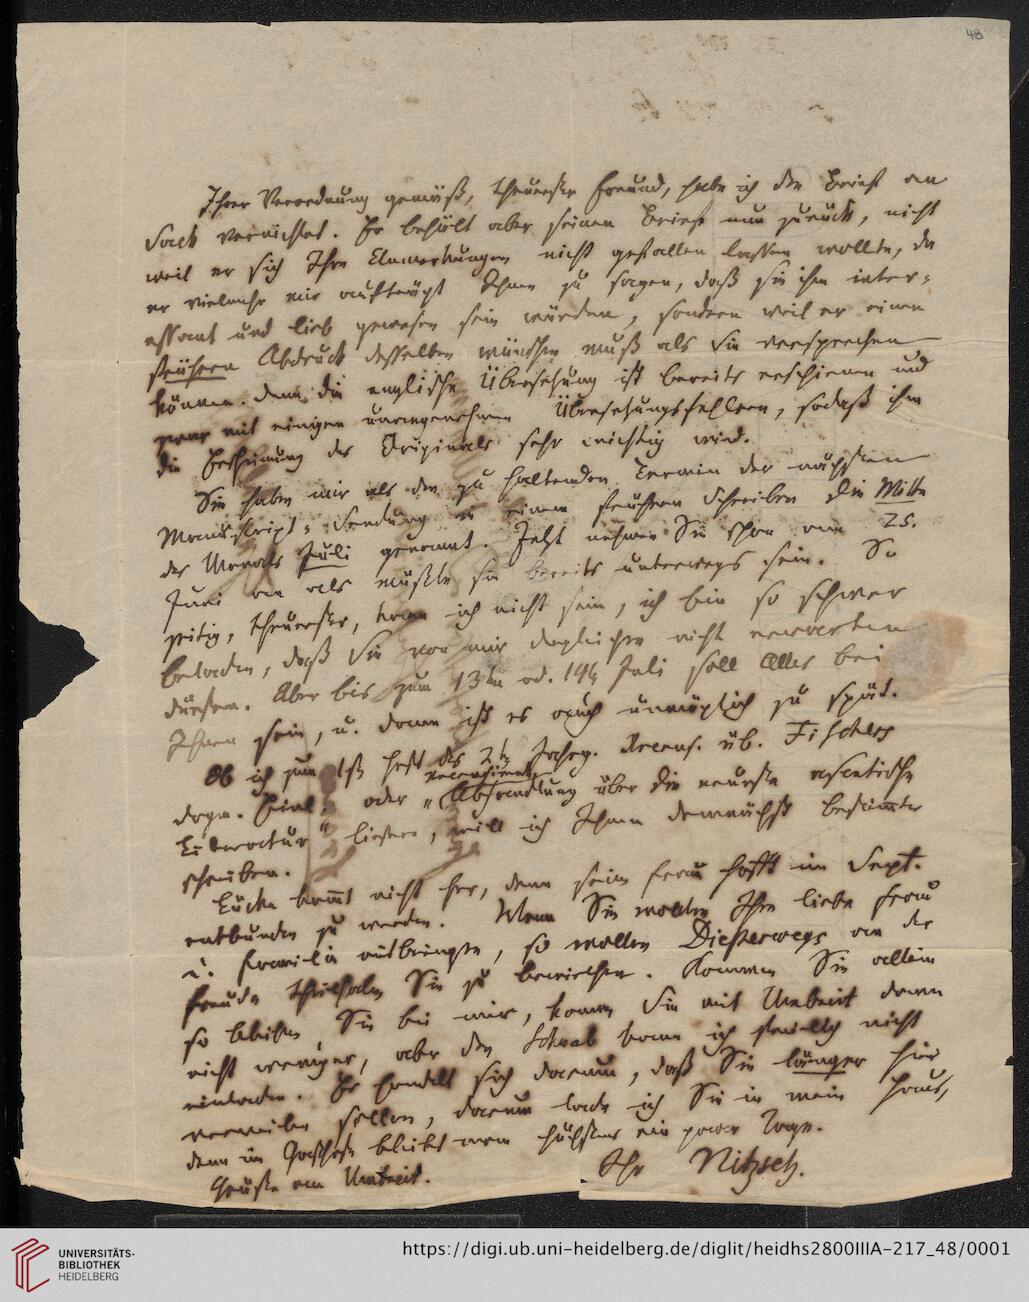 48
Ihrer Verordnung gemäß, theuerster Freund, habe ich den Brief an
Sack vernichtet. Er behält aber seinen Brief nun zurück, nicht
weil er sich Ihre Anmerkungen nicht gefallen lassen wollte, da
er vielmehr mir aufträgt Ihnen zu sagen, daß sie ihm inter-
essant und lieb gewesen sein würden, sondern weil er einen
frühern Abdruck desselben wünschen muß als Sie versprechen
können. Denn die englische Übersetzung ist bereits erschienen und
zwar mit einigen unangenehmen Übersetzungsfehlern, sodaß ihm
die Erscheinung des Originals sehr wichtig wird.
Sie haben mir als den zu haltenden Termin der nächsten
Manuskript-Sendung in einem frühern Schreiben die Mitte
des Monats Juli genannt. Jetzt nehmen Sie schon am 25.
Juni an als müßte sie bereits unterwegs sein. So
zeitig, theuerster, kann ich nicht sein, ich bin so schwer
beladen, daß Sie von mir dergleichen nicht erwarten
dürfen. Aber bis zum 13ten od. 14ten Juli soll Alles bei
Ihnen sein, u. dann ist es auch unmöglich zu spät.
Ob ich zum 1st Heft des 2ten Jahrg. Recens. üb. Fischers
dogm. oder "recensirende Abhandlung über die neueste ascetische
Literatur" liefere, will ich Ihnen demnächst bestimmter
schreiben.
Lücke kommt nicht her, denn seine Frau hofft im Sept.
entbunden zu werden. Wenn Sie wollten Ihre liebe Frau
u. Familie mitbringen, so wollen Diesterwegs an der
Freude theilhaben Sie zu bewirthen. Kommen Sie allein
so bleiben Sie bei mir, kommen Sie mit Umbreit dann
nicht weniger, aber den Schwab kann ich freilich nicht
einladen. Es handelt sich darum, daß Sie länger hier
verweilen sollen, darum lade ich Sie in mein Haus,
denn im Gasthofe bleibt man höchstens ein paar Tage.
Grüße an Umbreit. Ihr Nitzsch.
UNIVERSITÄTS-
BIBLIOTHEK
HEIDELBERG
https://digi.ub.uni-heidelberg.de/diglit/heidhs2800IIIA-217_48/0001